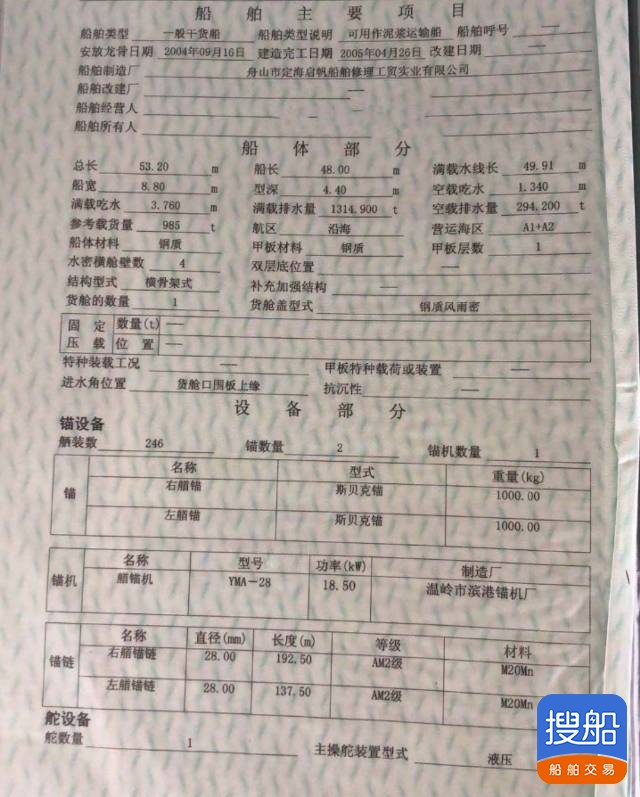 船舶主要项目
船舶类型 一般干货船 船舶类型说明 可用作泥浆运输船 船舶呼号 —
安放龙骨日期 2004年09月16日 建造完工日期 2005年04月26日 改建日期 —
船舶制造厂 舟山市定海启帆船舶修理工贸实业有限公司
船舶改建厂 —
船舶经营人
船舶所有人
船体部分
总长 53.20 m 船长 48.00 m 满载水线长 49.91 m
船宽 8.80 m 型深 4.40 m 空载吃水 1.340 m
满载吃水 3.760 m 满载排水量 1314.900 t 空载排水量 294.200 t
参考载货量 985 t 航区 沿海 营运海区 A1+A2
船体材料 钢质 甲板材料 钢质 甲板层数 1
水密横舱壁数 4 双层底位置 —
结构型式 横骨架式 补充加强结构 —
货舱的数量 1 货舱盖型式 钢质风雨密
固定 数量(t) —
压载 位置 —
特种装载工况 — 甲板特种载荷或装置 —
进水角位置 货舱口围板上缘 抗沉性 —
设备部分
锚设备
舾装数 246 锚数量 2 锚机数量 1
锚 名称 型式 重量(kg)
右艏锚 斯贝克锚 1000.00
左艏锚 斯贝克锚 1000.00
锚机 名称 型号 功率(kW) 制造厂
艏锚机 YMA-28 18.50 温岭市滨港锚机厂
锚链 名称 直径(mm) 长度(m) 等级 材料
右艏锚链 28.00 192.50 AM2级 M20Mn
左艏锚链 28.00 137.50 AM2级 M20Mn
舵设备
舵数量 1 主操舵装置型式 液压
搜船
船舶交易